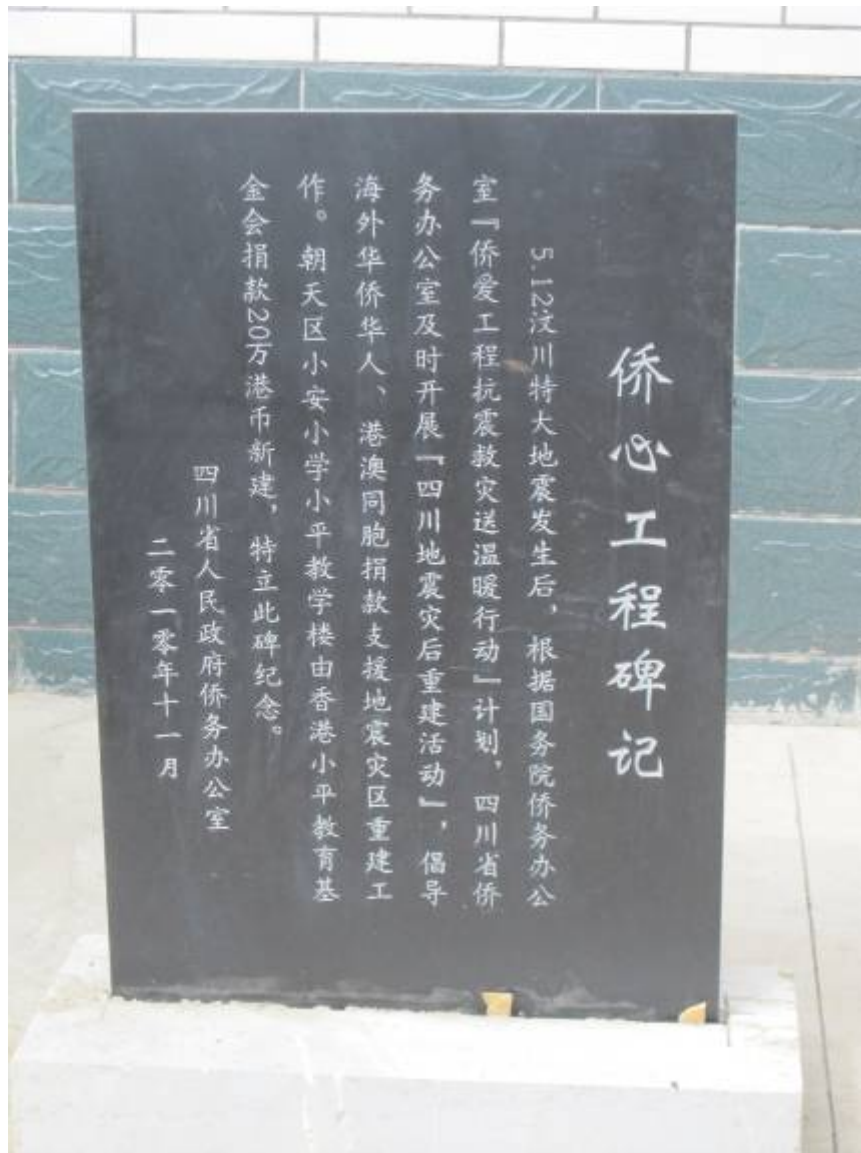 侨心工程碑记
5.12汶川特大地震发生后，根据国务院侨务办公
室『侨爱工程抗震救灾送温暖行动』计划，四川省侨
务办公室及时开展『四川地震灾后重建活动』，倡导
海外华侨华人、港澳同胞捐款支援地震灾区重建工
作。朝天区小安小学小平教学楼由香港小平教育基
金会捐款20万港币新建，特立此碑纪念。
四川省人民政府侨务办公室
二零一零年十一月